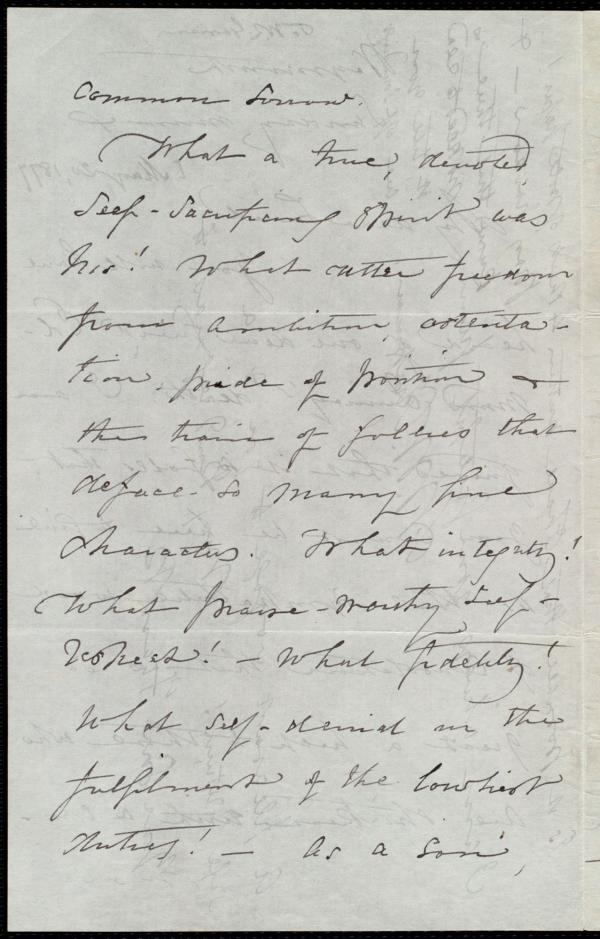 common sorrow.
What a true, devoted
self-sacrificing spirit was
his! What utter freedom
from ambition, ostenta-
tion, pride of position &
the train of follies that
deface so many fine
characters. What integrity!
What praise-worthy self-
respect! - What fidelity!
What self-denial in the
fulfilment of the lowliest
duties! - As a son,